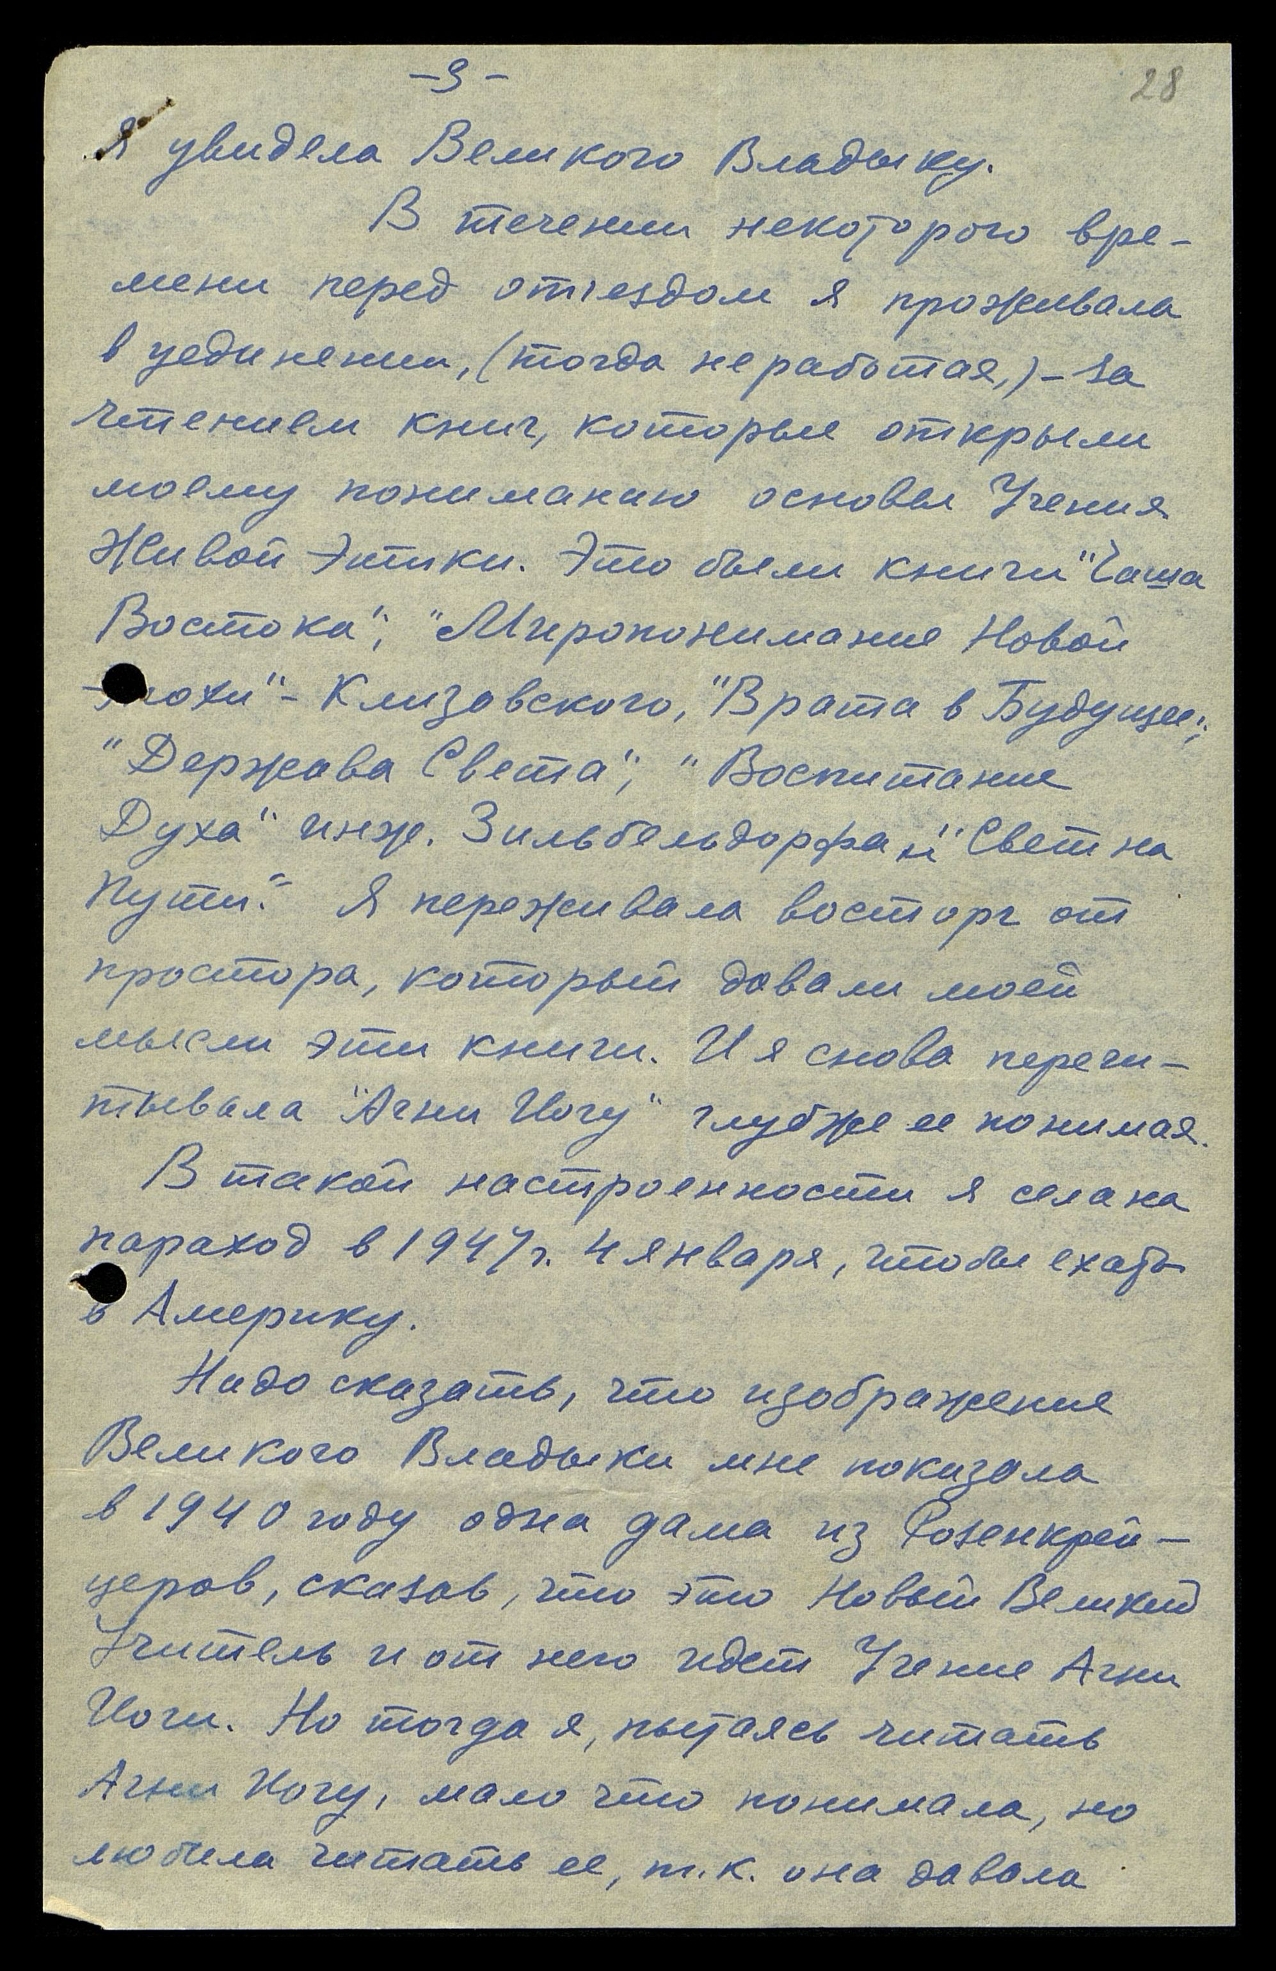 -3-
28
Я увидела Великого Владыку.
В течении некоторого вре-
мени перед отъездом я проживала
в уединении, (тогда не работая,) - за
чтением книг, которые открыли
моему пониманию основы Учения
Живой Этики. Это были книги "Чаша
Востока"; "Миропонимание Новой
Эпохи" - Клизовского, "Врата в Будущее";
"Держава Света"; "Воспитание
Духа" инж. Зильбельдорфа и "Свет на
Пути". Я переживала восторг от
простора, который давали моей
мысли эти книги. И я снова перечи-
тывала "Агни Иогу" глубже ее понимая.
В такой настроенности я села на
параход в 1947г. 4 января, чтобы ехать
в Америку.
Надо сказать, что изображение
Великого Владыки мне показала
в 1940 году одна дама из Розенкрей-
церов, сказав, что это Новый Великий
Учитель и от него идет Учение Агни
Иоги. Но тогда я, пытаясь читать
Агни Иогу, мало что понимала, но
любила читать ее, т.к. она давала